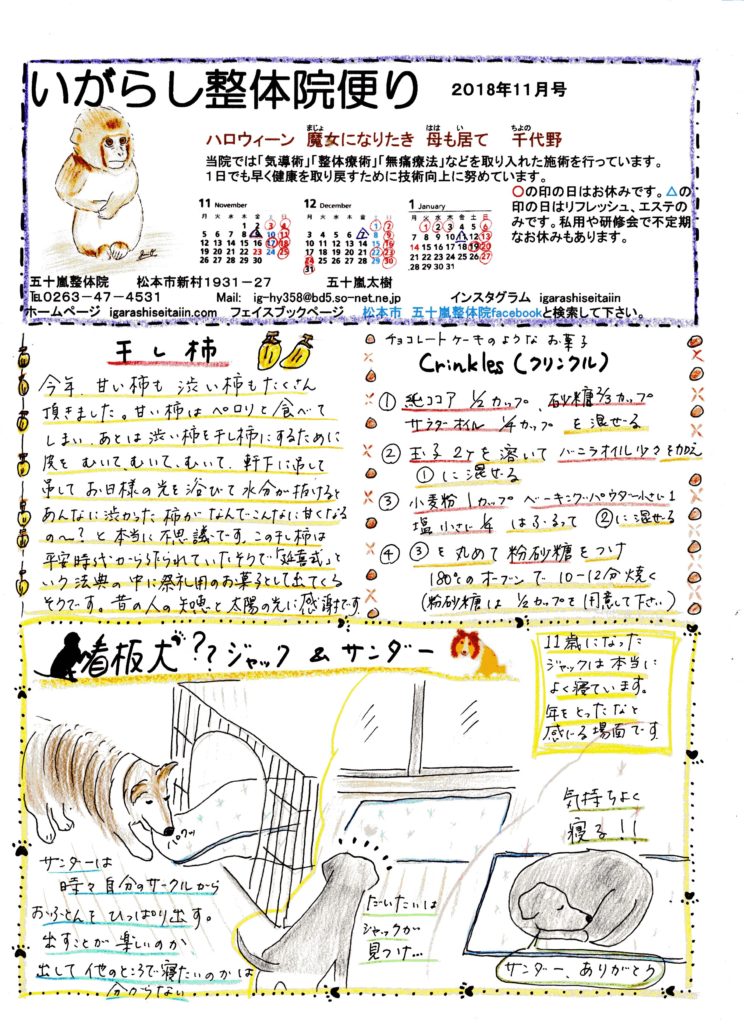 いがらし整体院便り 2018年11月号
ハロウィーン 魔女になりたき 母も居て 千代野
まじょ はは い ちよの
当院では「気導術」「整体療術」「無痛療法」などを取り入れた施術を行っています。
1日でも早く健康を取り戻すために技術向上に努めています。
○の印の日はお休みです。△の
印の日はリフレッシュ、エステの
みです。私用や研修会で不定期
なお休みもあります。
11 November
月 火 水 木 金 土 日
1 2 3 4
5 6 7 8 9 10 11
12 13 14 15 16 17 18
19 20 21 22 23 24 25
26 27 28 29 30
12 December
月 火 水 木 金 土 日
1 2
3 4 5 6 7 8 9
10 11 12 13 14 15 16
17 18 19 20 21 22 23
24 25 26 27 28 29 30
31
1 January
月 火 水 木 金 土 日
1 2 3 4 5 6
7 8 9 10 11 12 13
14 15 16 17 18 19 20
21 22 23 24 25 26 27
28 29 30 31
五十嵐整体院 松本市新村1931-27 五十嵐太樹
℡0263-47-4531 Mail: ig-hy358@bd5.so-net.ne.jp インスタグラム igarashiseitaiin
ホームページ igarashiseitaiin.com フェイスブックページ 松本市 五十嵐整体院facebookと検索して下さい。
干し柿
今年、甘い柿も 渋い柿もたくさん
頂きました。甘い柿はペロリと食べて
しまい、あとは渋い柿を干し柿にするために
皮を むいて、むいて、むいて、軒下に吊して
吊して お日様の光を浴びて 水分が抜けると
あんなに渋かった柿が なんでこんなに甘くなる
の〜? と本当に不思議です。この干し柿は
平安時代から作られていたそうで「延喜式」と
いう法典の中に祭礼用のお菓子として出てくる
そうです。昔の人の知恵と太陽の光に感謝です
チョコレートケーキのような お菓子
Crinkles (クリンクル)
① 純ココア 1/2カップ、砂糖2/3カップ
サラダオイル 1/4カップ を混ぜる
② 玉子 2ケを溶いて バニラオイル少々を加え
①に混ぜる
③ 小麦粉1カップ ベーキングパウダー小さじ1
塩小さじ1/4 はふるって ②に混ぜる
④ ③を丸めて粉砂糖をつけ
180°のオーブンで 10-12分焼く
(粉砂糖は1/2カップを用意して下さい)
看板犬?? ジャック & サンダー
11歳になった
ジャックは本当に
よく寝ています。
年をとったなと
感じる場面です
パクッ
サンダーは
時々自分のサークルから
おふとんをひっぱり出す。
出すことが楽しいのか
出して他のところで寝たいのかは
分からない
だいたいは
ジャックが
見つけ…
気持ちよく
寝る!!
サンダー、ありがとう